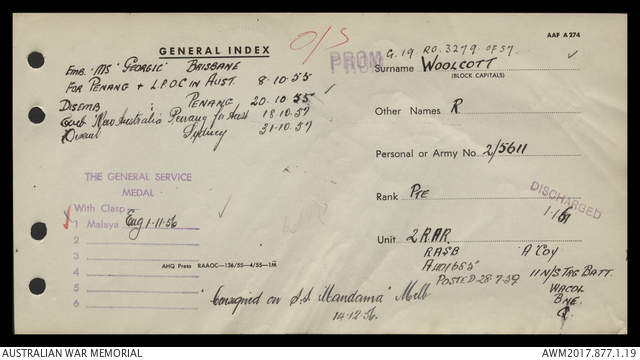 AAF A274
GENERAL INDEX
O/S
PROM
G.19. RO. 3279 OF 57.
Surname WOOLCOTT
(BLOCK CAPITALS)
EMB. MS 'GEORGIC' BRISBANE
FOR PENANG & L.P.O.C IN AUST. 8-10-55
DISEMB PENANG, 20.10.55
Emb 'New Australia' Penang for Aust 18.10.57
Disemb Sydney 31.10.57
Other Names R
Personal or Army No. 2/5611
Rank PTE
DISCHARGED
Unit 2 R.A.R.
RASB A COY
POSTED 28.7.59 11 N/S TRG BATT.
WACOL
BNE.
Q
THE GENERAL SERVICE
MEDAL
With Clasp
1 Malaya Eng 1-11-56
2
3
4
5
6
AHQ Press RAAOC—136/55—4/55—1M
Consigned on S.S. Mandama Melb
14-12-56.
AUSTRALIAN WAR MEMORIAL
AWM2017.877.1.19